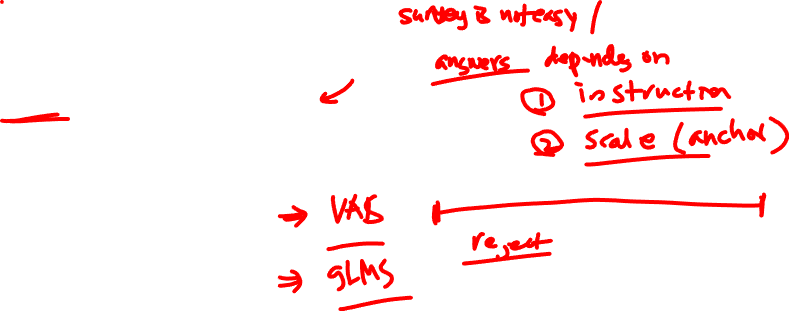 survey is not easy /
answers depends on
① instruction
② scale (anchor)
→ VAS
reject
⇒ gLMS